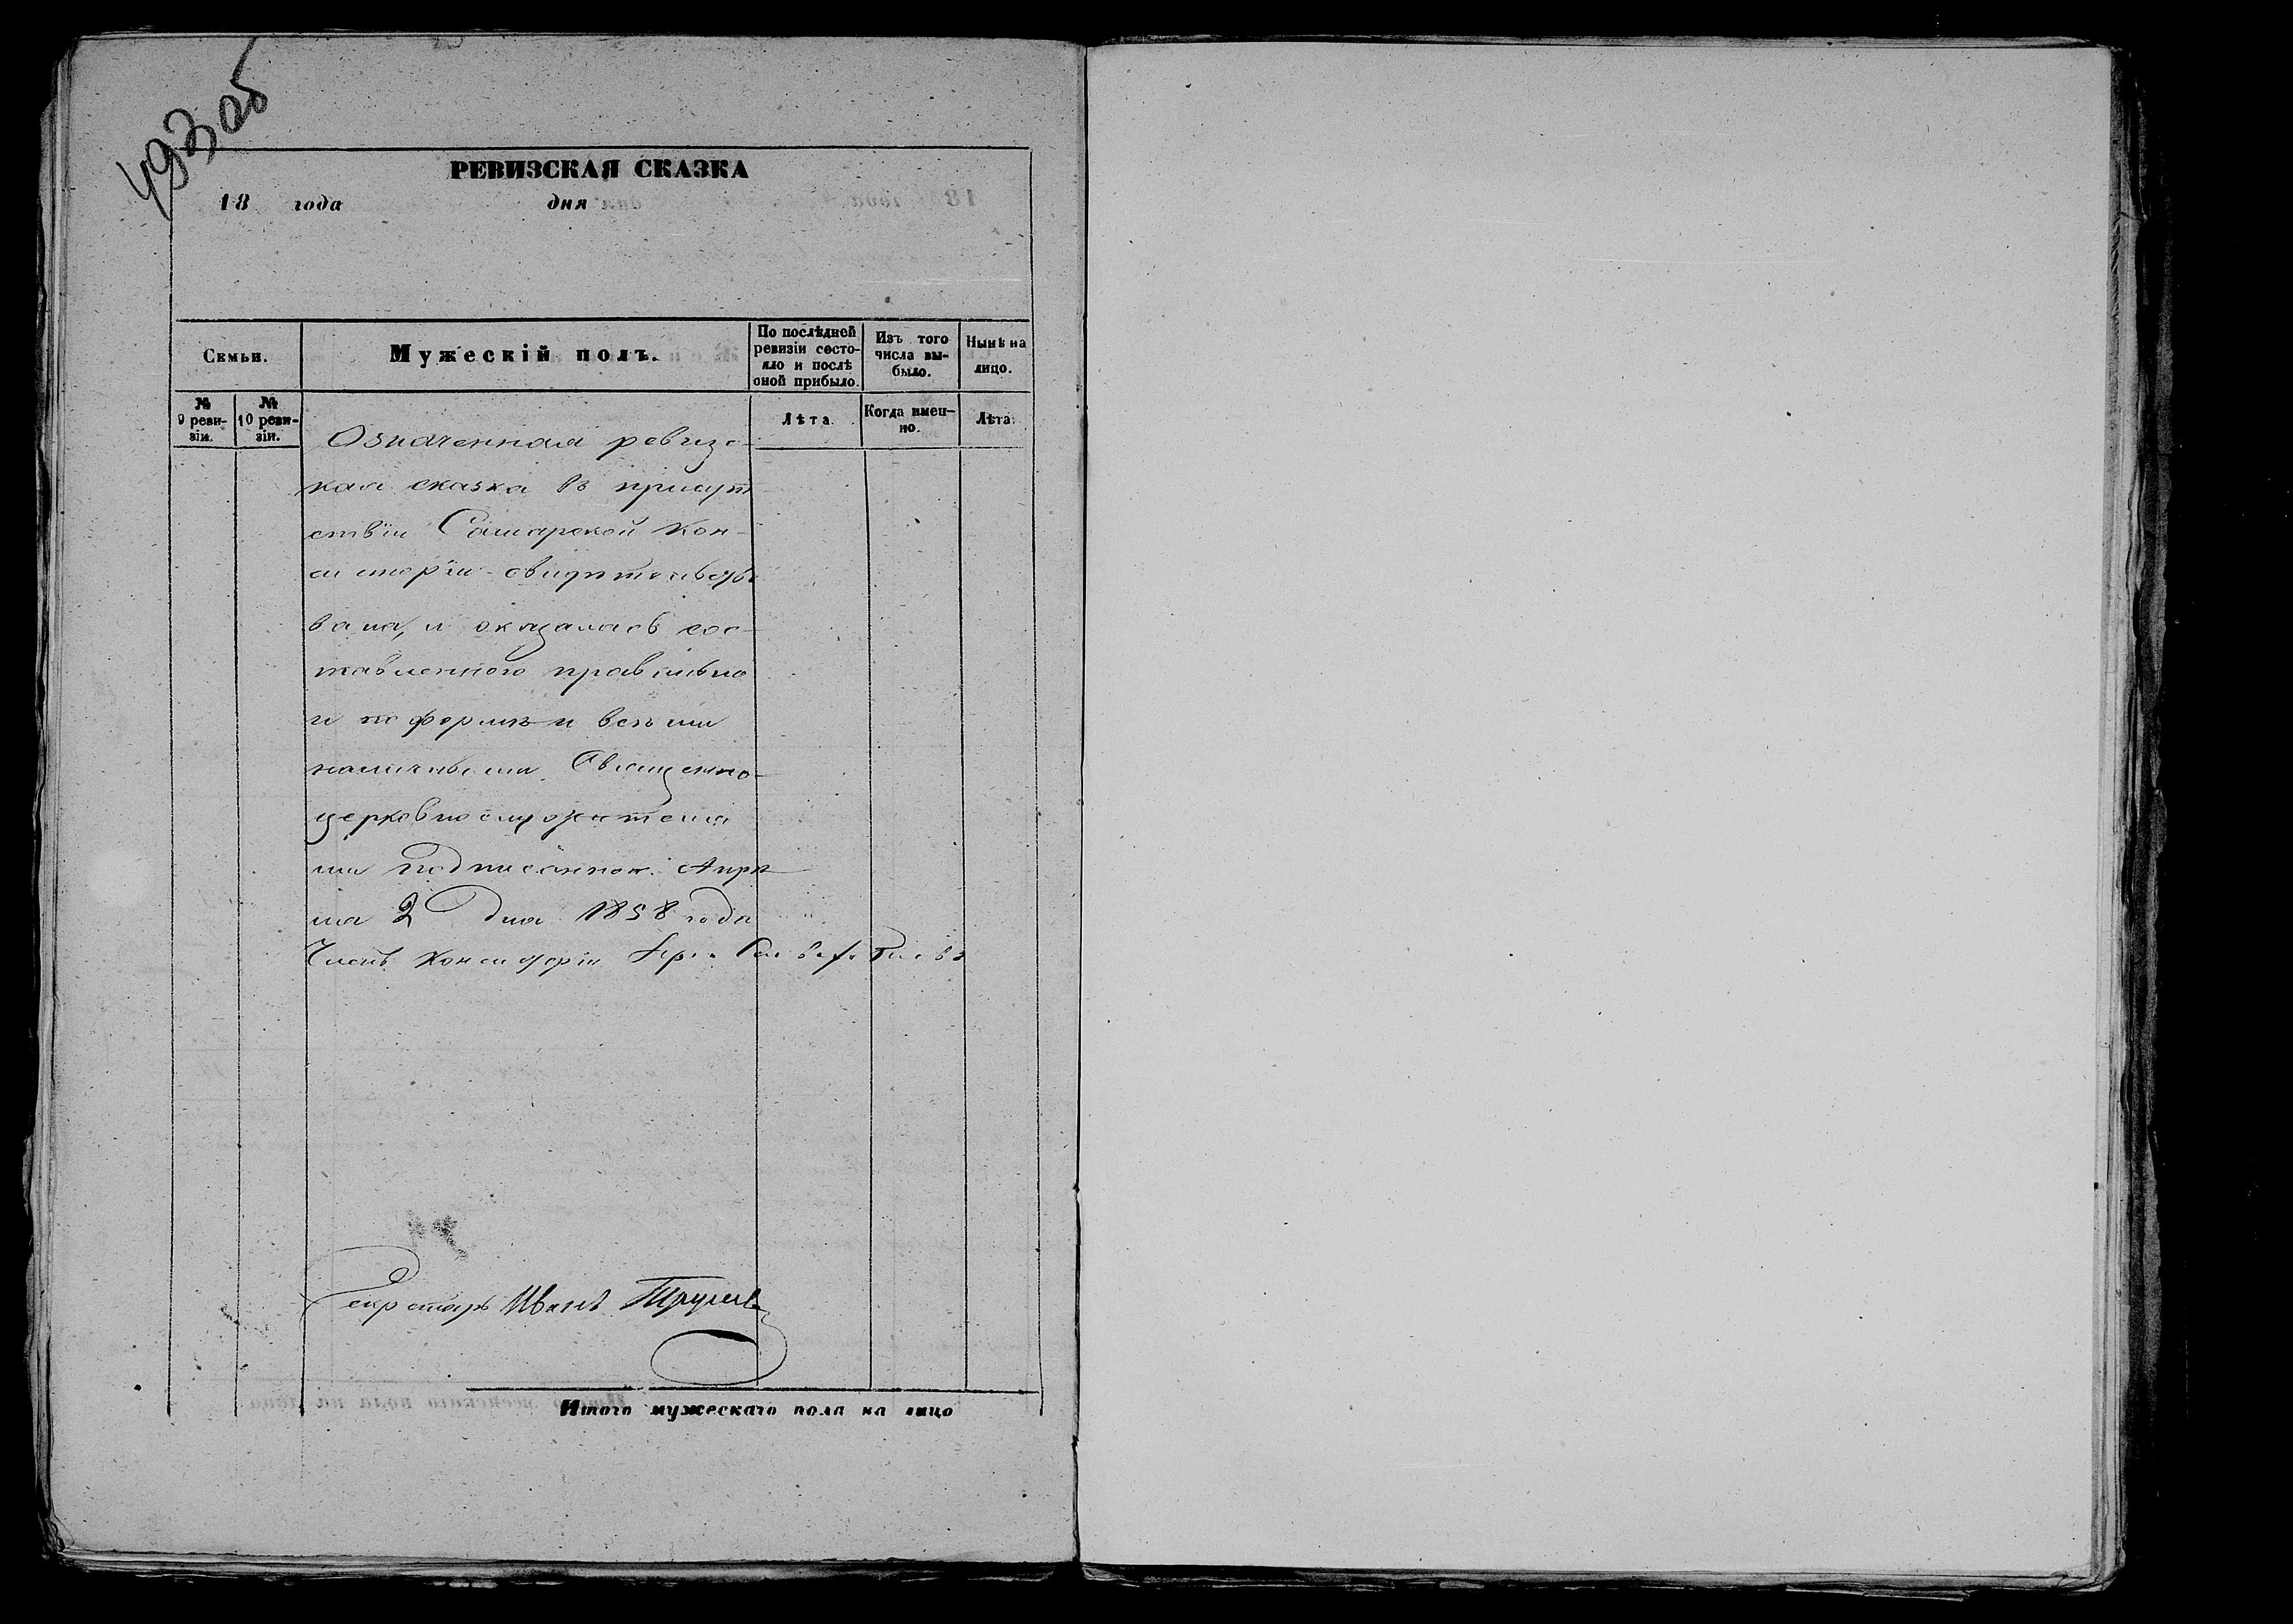 493 об
РЕВИЗСКАЯ СКАЗКА
18 года дня
Семьи.
Мужескій полъ.
По послѣдней ревизіи состо-
яло и послѣ оной прибыло.
Изъ того числа вы-
было.
Нынѣ на лицо.
№ 9 реви-
зіи.
№ 10 реви-
зіи.
Лѣта.
Когда имен-
но.
Лѣта.
Означенная ревизс-
кая сказка въ присут
ствіи Самарской Кон-
систоріи свидѣтельство
вана, и оказалась сос-
тавленною правильно
и по формѣ и всѣми
наличными Священно-
церковнослужителя
ми подписанною. Апрѣ
ля 2 дня 1858 года
Членъ Консисторіи
Секретарь Иванъ
Итого мужескаго пола на лицо